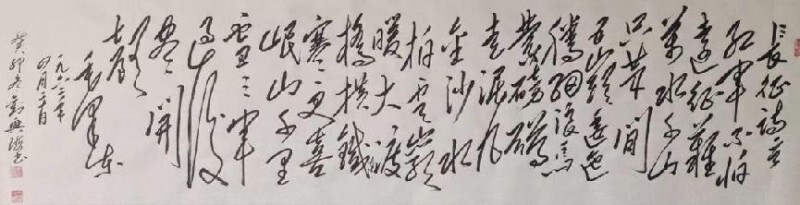 紅軍不怕
遠征難
萬水千山
只等閒
五嶺逶迤
騰細浪烏
蒙磅礴
走泥丸
金沙水
拍雲崖
暖大渡
橋橫鐵
寒更喜
岷山千里
雪三軍
過後
盡開
顏
毛澤東
一九六二年
四月二十日
癸卯冬